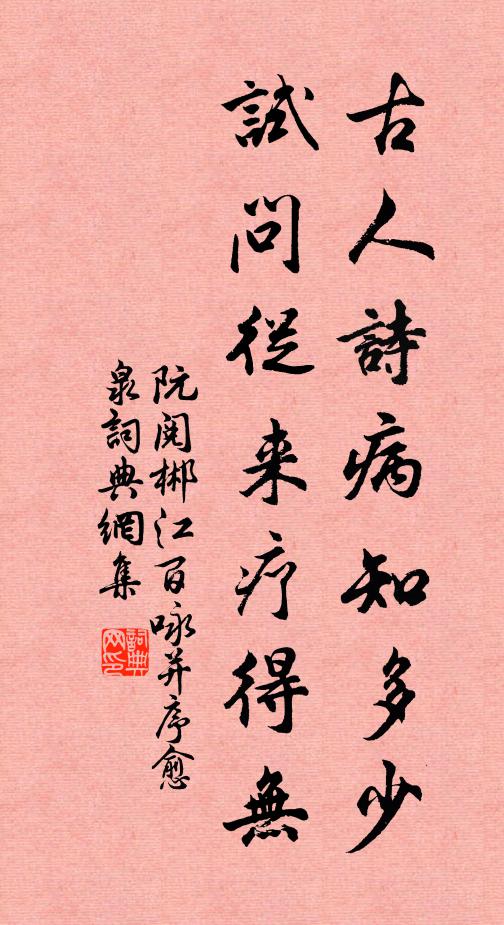 古人詩病知多少
試問從来疗得無
阮閱郴江百咏并序愈
泉詞典網集
詞典网印